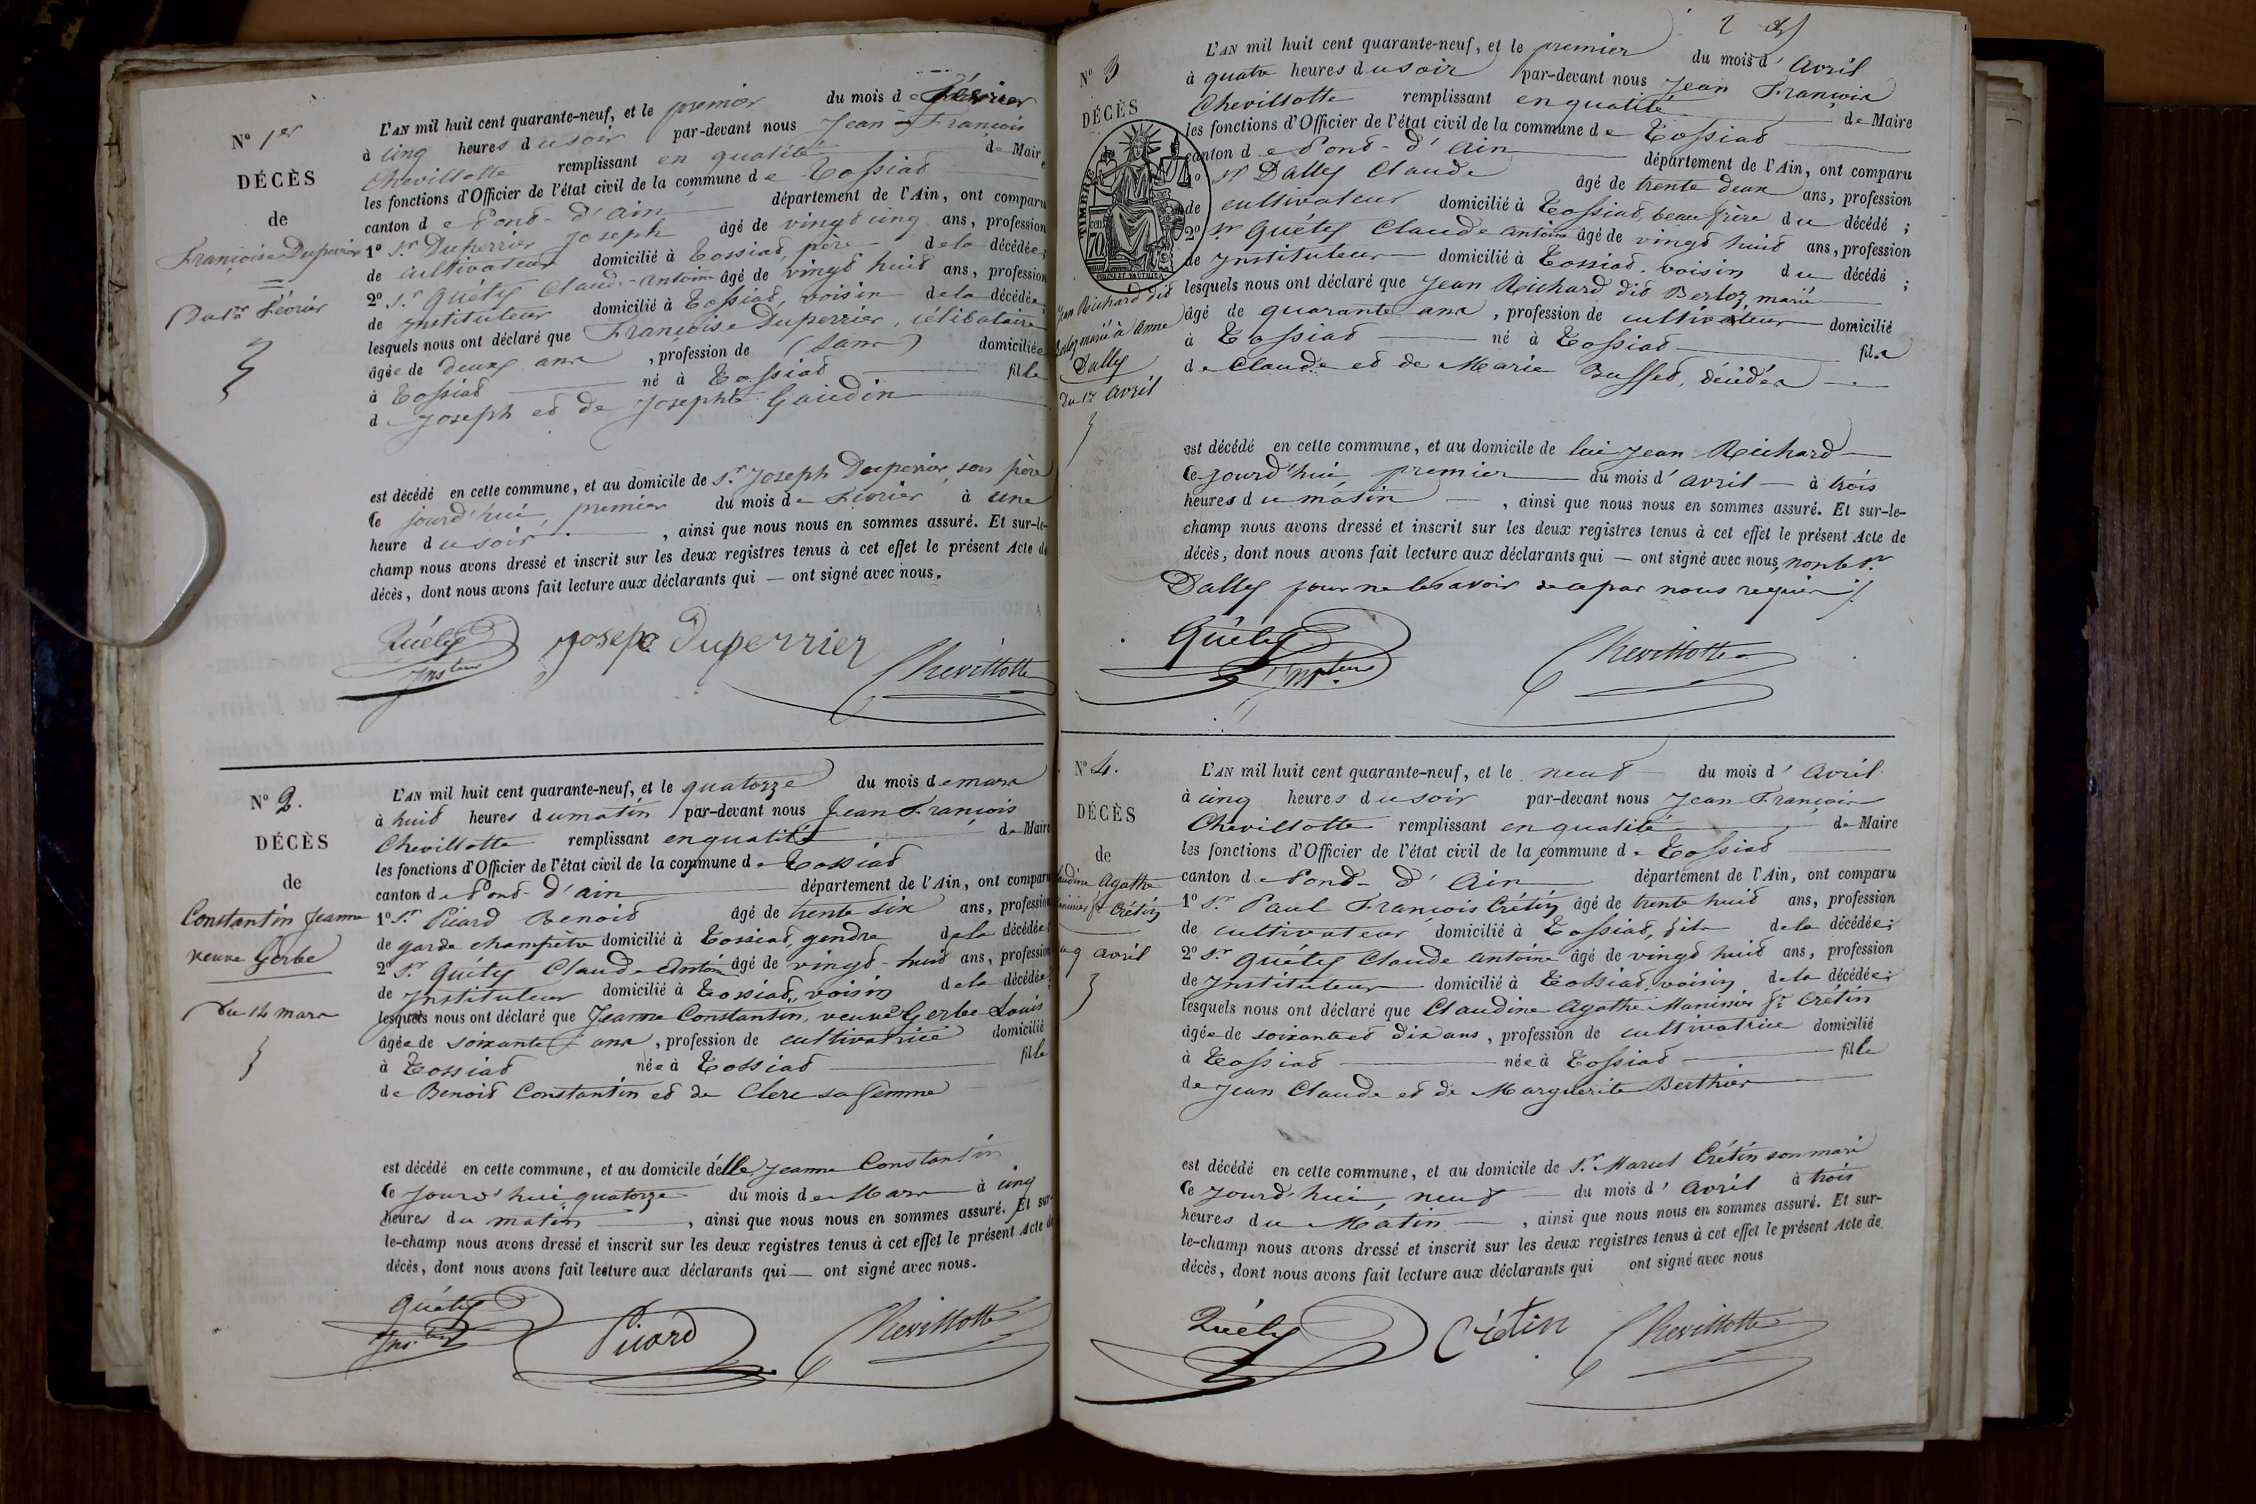 N° 1er
DÉCÈS
de
Françoise Duperrier
Du 1er Février
L'AN mil huit cent quarante-neuf, et le premier du mois de février
à cinq heures du soir par-devant nous Jean-François
Chevillotte remplissant en qualité de Maire
les fonctions d'Officier de l'état civil de la commune de Tossiat
canton de Pont-d'Ain département de l'Ain, ont comparu
1° Sr Duperrier Joseph âgé de vingt cinq ans, profession
de cultivateur domicilié à Tossiat, père de la décédée;
2° Sr Quély Claude-Antoine âgé de vingt huit ans, profession
de Instituteur domicilié à Tossiat, voisin de la décédée;
lesquels nous ont déclaré que Françoise Duperrier, célibataire
âgée de deux ans, profession de (sans) domiciliée
à Tossiat né à Tossiat fille
d Joseph et de Josephte Gaidin
est décédé en cette commune, et au domicile de Sr Joseph Duperrier, son père
Ce jourd'hui, premier du mois de Février à une
heure du soir, ainsi que nous nous en sommes assuré. Et sur-le-
champ nous avons dressé et inscrit sur les deux registres tenus à cet effet le présent Acte de
décès, dont nous avons fait lecture aux déclarants qui — ont signé avec nous.
Quély Joseph Duperrier Chevillotte
Insteur
N° 2.
DÉCÈS
de
Constantin Jeanne
veuve Gerbe
Du 14 mars
L'AN mil huit cent quarante-neuf, et le quatorze du mois de mars
à huit heures du matin par-devant nous Jean François
Chevillotte remplissant en qualité de Maire
les fonctions d'Officier de l'état civil de la commune de Tossiat
canton de Pont-d'ain département de l'Ain, ont comparu
1° Sr Picard Benoit âgé de trente six ans, profession
de garde champêtre domicilié à Tossiat, gendre de la décédée;
2° Sr Quély Claude Antoine âgé de vingt-huit ans, profession
de Instituteur domicilié à Tossiat, voisin de la décédée;
lesquels nous ont déclaré que Jeanne Constantin, veuve Gerbe Louis
âgée de soixante ans, profession de cultivatrice domicilié
à Tossiat née à Tossiat fille
de Benoit Constantin et de Clerc sa femme
est décédé en cette commune, et au domicile d'elle Jeanne Constantin
Ce Jourd'hui quatorze du mois de Mars à cinq
heures du matin, ainsi que nous nous en sommes assuré. Et sur-
le-champ nous avons dressé et inscrit sur les deux registres tenus à cet effet le présent Acte de
décès, dont nous avons fait lecture aux déclarants qui — ont signé avec nous.
Quély Picard Chevillotte
Ins.teur
2
N° 3
DÉCÈS
TIMBRE
70
Jean Richard dit
Berloz marié à Anne
Dally
Du 1er avril
L'AN mil huit cent quarante-neuf, et le premier du mois d'Avril
à quatre heures du soir par-devant nous Jean François
Chevillotte remplissant en qualité de Maire
les fonctions d'Officier de l'état civil de la commune de Tossiat
canton de Pont-d'Ain département de l'Ain, ont comparu
1° Sr Dally Claude âgé de trente deux ans, profession
de cultivateur domicilié à Tossiat, beau frère du décédé;
2° Sr Quély Claude Antoine âgé de vingt huit ans, profession
de Instituteur domicilié à Tossiat, voisin du décédé;
lesquels nous ont déclaré que Jean Richard dit Berloz, marié
âgé de quarante ans, profession de cultivateur domicilié
à Tossiat né à Tossiat fils
de Claude et de Marie Busset, décédés
est décédé en cette commune, et au domicile de lui Jean Richard
Ce jourd'hui, premier du mois d'avril à trois
heures du matin, ainsi que nous nous en sommes assuré. Et sur-le-
champ nous avons dressé et inscrit sur les deux registres tenus à cet effet le présent Acte de
décès, dont nous avons fait lecture aux déclarants qui — ont signé avec nous, non le Sr
Dally pour ne le savoir de ce par nous requis
Quély Chevillotte
Insteur
N° 4.
DÉCÈS
de
Claudine Agathe
Manissier fe Crétin
Du 9 avril
L'AN mil huit cent quarante-neuf, et le neuf du mois d'Avril
à cinq heures du soir par-devant nous Jean-François
Chevillotte remplissant en qualité de Maire
les fonctions d'Officier de l'état civil de la commune de Tossiat
canton de Pont-d'Ain département de l'Ain, ont comparu
1° Sr Paul François Crétin âgé de trente huit ans, profession
de cultivateur domicilié à Tossiat, fils de la décédée;
2° Sr Quély Claude Antoine âgé de vingt huit ans, profession
de Instituteur domicilié à Tossiat, voisin de la décédée;
lesquels nous ont déclaré que Claudine Agathe Manissier fe Crétin
âgée de soixante et dix ans, profession de cultivatrice domicilié
à Tossiat née à Tossiat fille
de Jean Claude et de Marguerite Berthier
est décédé en cette commune, et au domicile de Sr Marcel Crétin son mari
Ce Jourd'hui, neuf du mois d'Avril à trois
heures du Matin, ainsi que nous nous en sommes assuré. Et sur-
le-champ nous avons dressé et inscrit sur les deux registres tenus à cet effet le présent Acte de
décès, dont nous avons fait lecture aux déclarants qui ont signé avec nous
Quély Crétin Chevillotte